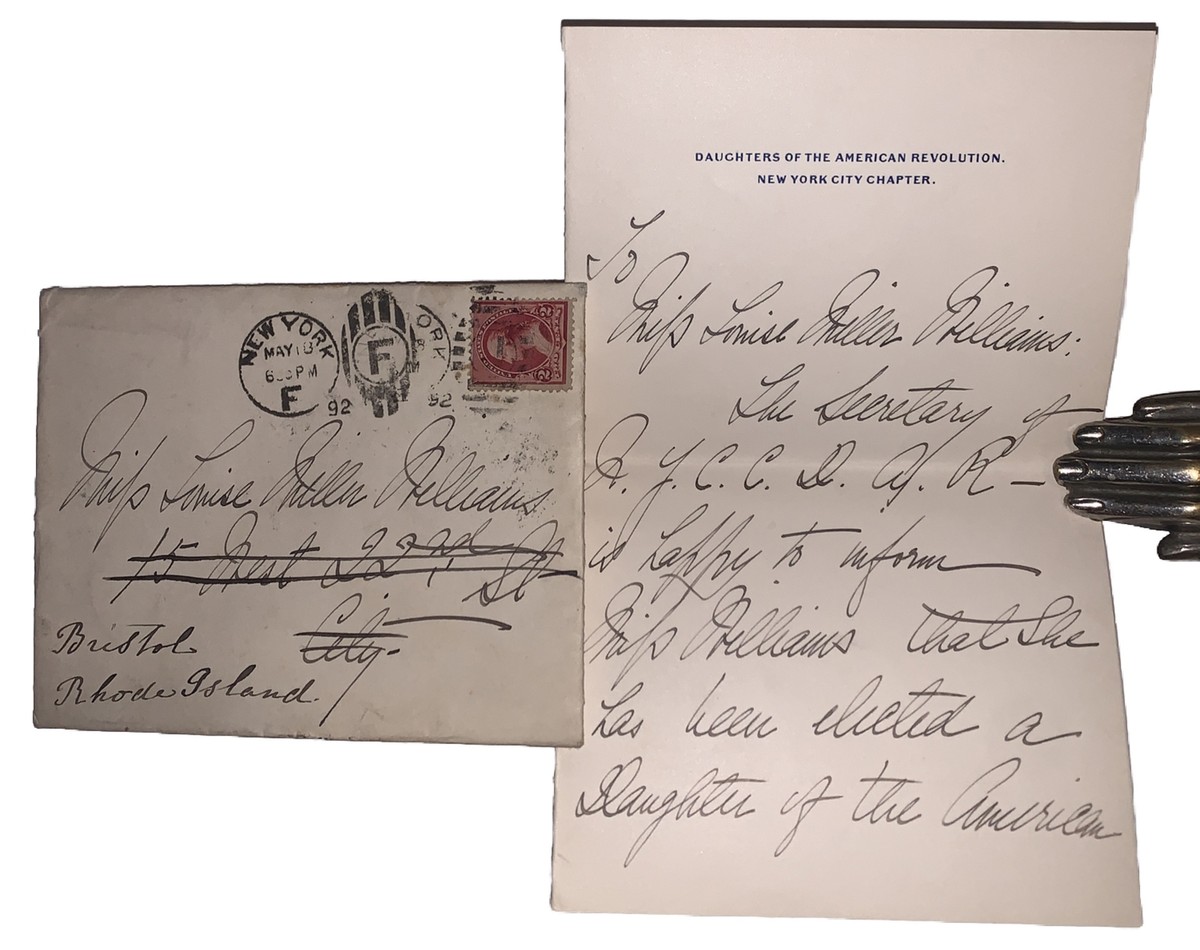 NEW YORK
MAY 18
6 PM
F
92
F
ORK
92
2 2
Miss Louise Miller Williams
15 West 22nd St
City
Bristol
Rhode Island.
DAUGHTERS OF THE AMERICAN REVOLUTION.
NEW YORK CITY CHAPTER.
To
Miss Louise Miller Williams:
The Secretary of
N. Y. C. C. D. A. R —
is happy to inform
Miss Williams that She
has been elected a
Daughter of the American